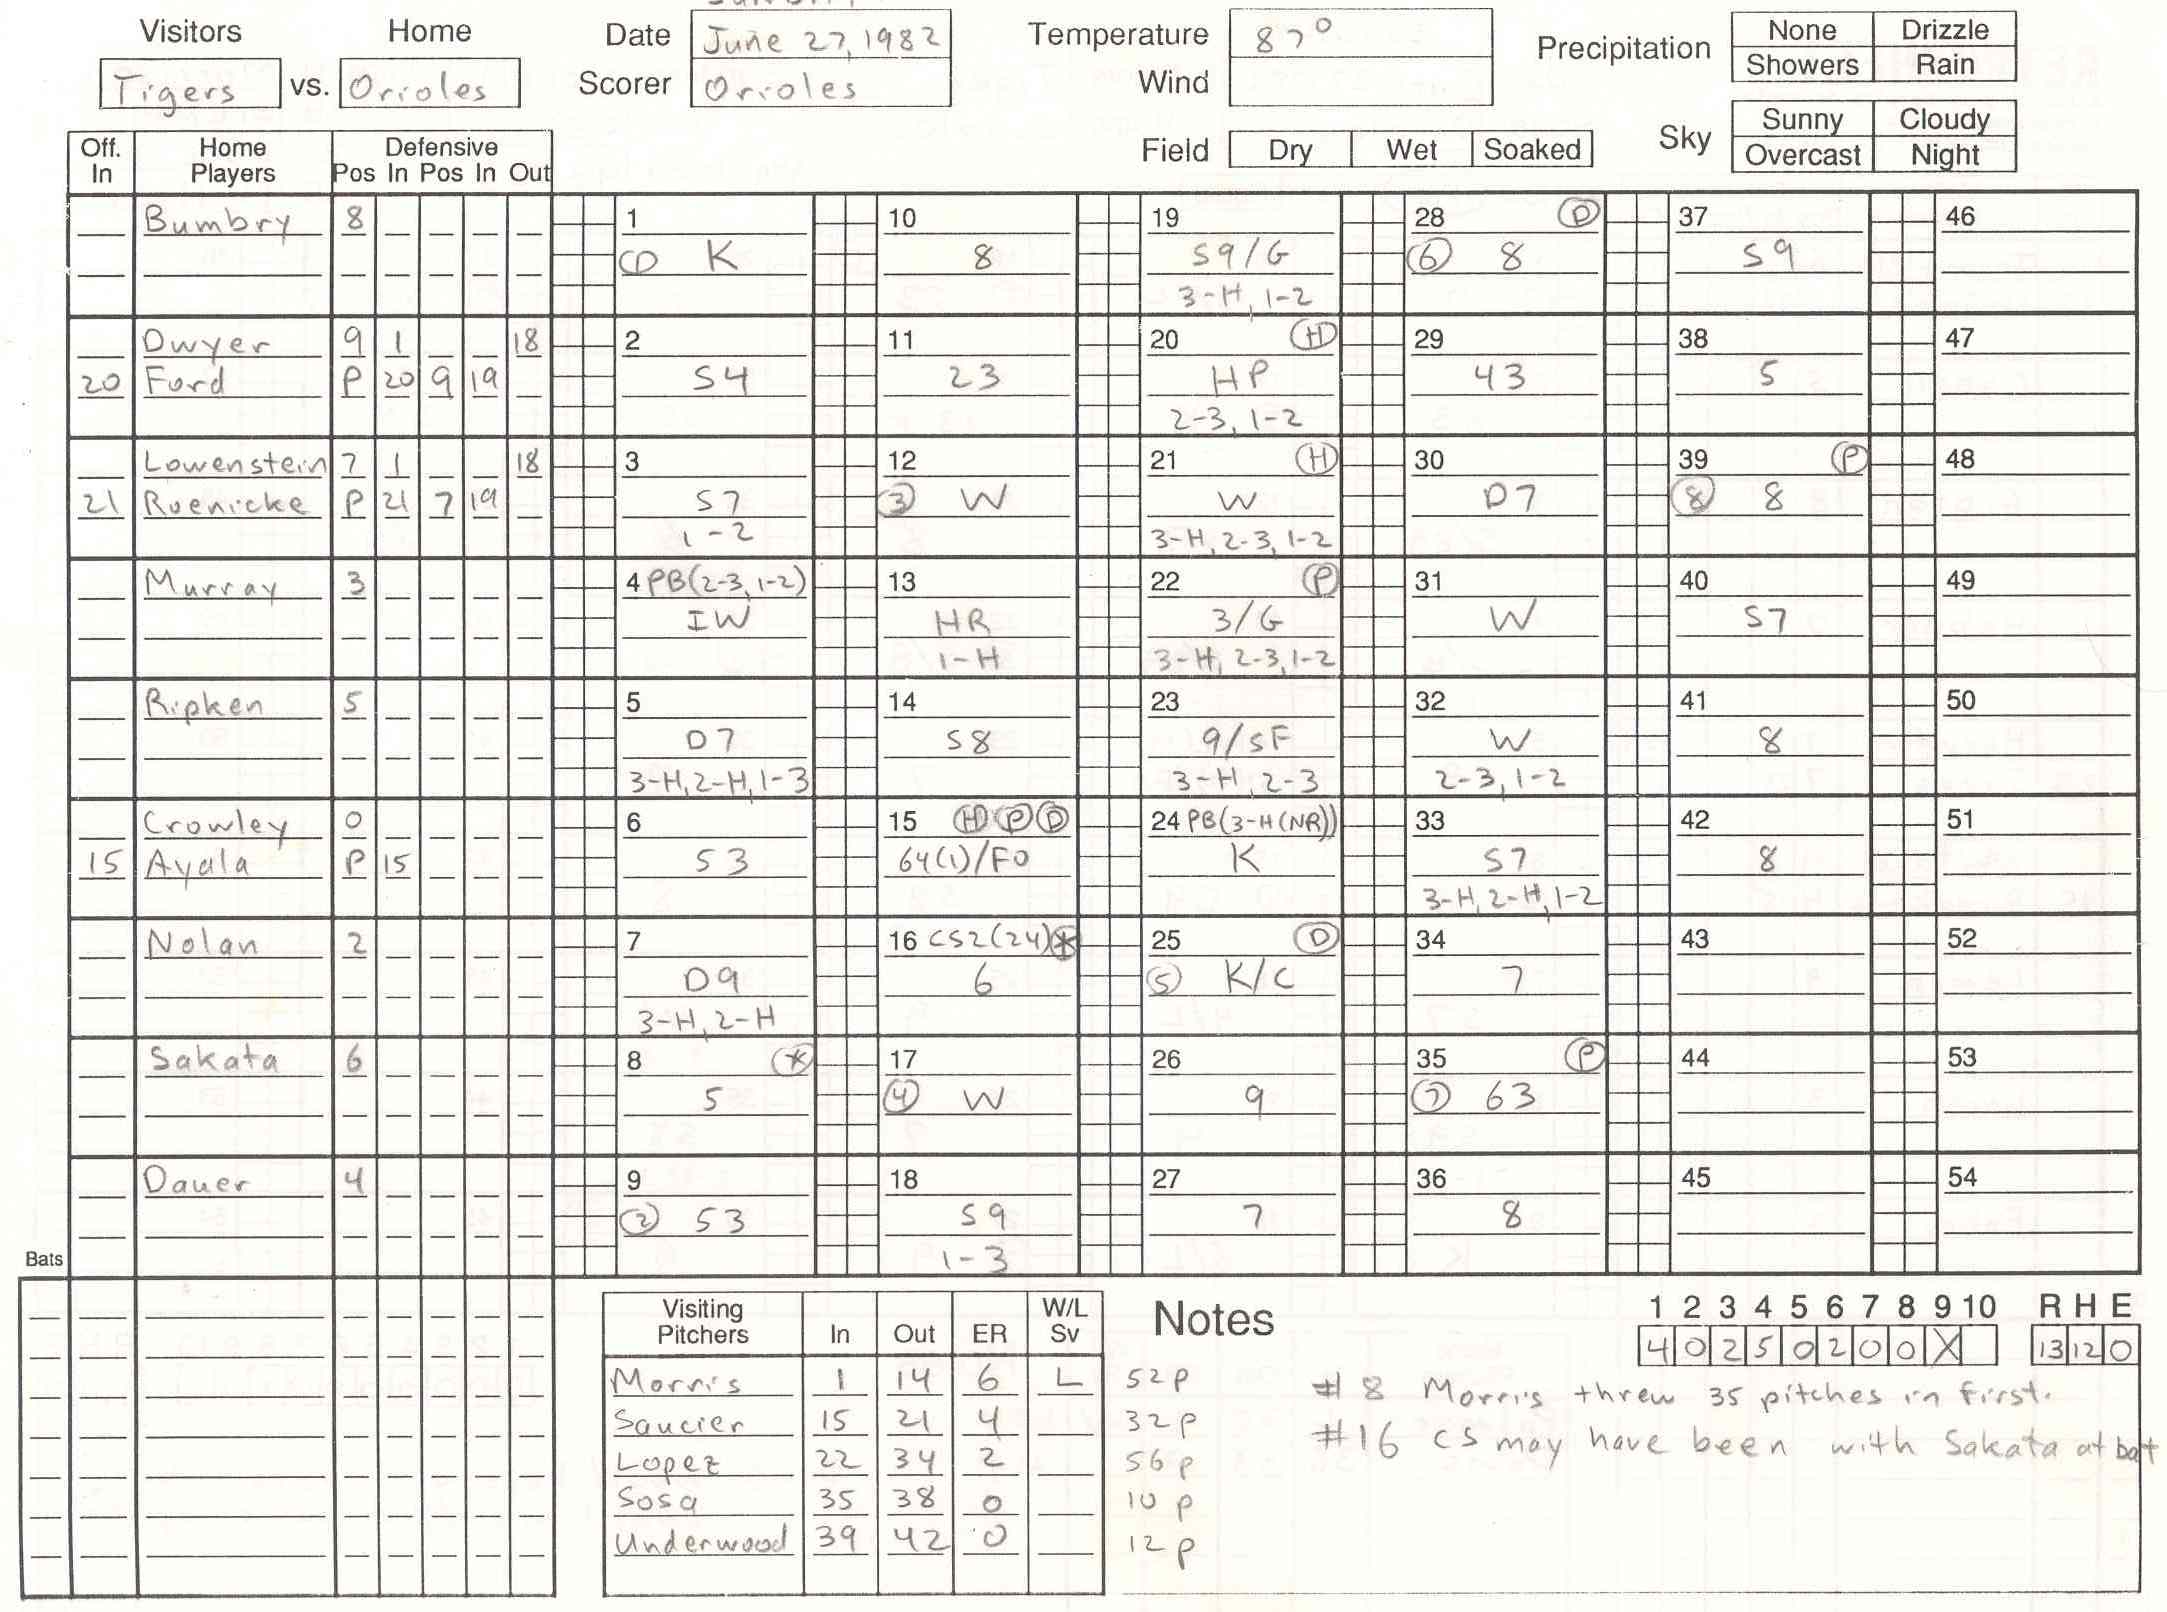 Visitors Home Date June 27, 1982 Temperature 87° Precipitation None Drizzle Showers Rain
Tigers vs. Orioles Scorer Orioles Wind
Field Dry Wet Soaked Sky Sunny Cloudy Overcast Night
Off. In Home Players Defensive Pos In Pos In Out
Bumbry 8
1 K
10 8
19 S9/G 3-H, 1-2
28 D 6 8
37 S9
46
Dwyer 9 1 18
20 Ford P 20 9 19
2 S4
11 23
20 H HP 2-3, 1-2
29 43
38 5
47
Lowenstein 7 1 18
21 Roenicke P 21 7 19
3 S7 1-2
12 3 W
21 H W 3-H, 2-3, 1-2
30 D7
39 P 8 8
48
Murray 3
4 PB(2-3, 1-2) IW
13 HR 1-H
22 P 3/G 3-H, 2-3, 1-2
31 W
40 S7
49
Ripken 5
5 D7 3-H, 2-H, 1-3
14 S8
23 9/SF 3-H, 2-3
32 W 2-3, 1-2
41 8
50
Crowley 0
15 Ayala P 15
6 53
15 H P D 64(1)/FO
24 PB(3-H(NR)) K
33 S7 3-H, 2-H, 1-2
42 8
51
Nolan 2
7 D9 3-H, 2-H
16 CS2(24) * 6
25 D 5 K/C
34 7
43
52
Sakata 6
8 * 5
17 4 W
26 9
35 P 7 63
44
53
Dauer 4
9 2 53
18 S9 1-3
27 7
36 8
45
54
Bats
Visiting Pitchers In Out ER W/L Sv
Morris 1 14 6 L 52p
Saucier 15 21 4 32p
Lopez 22 34 2 56p
Sosa 35 38 0 10p
Underwood 39 42 0 12p
Notes
1 2 3 4 5 6 7 8 9 10 R H E
4 0 2 5 0 2 0 0 X 13 12 0
#8 Morris threw 35 pitches in first.
#16 CS may have been with Sakata at bat